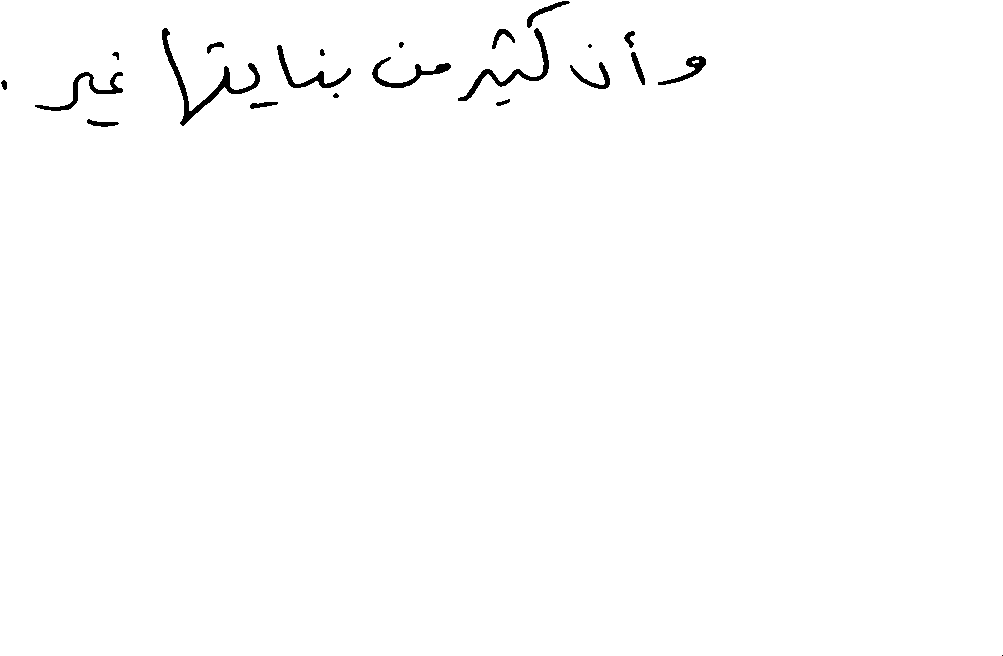 وأن كثير من بنايتها غير .